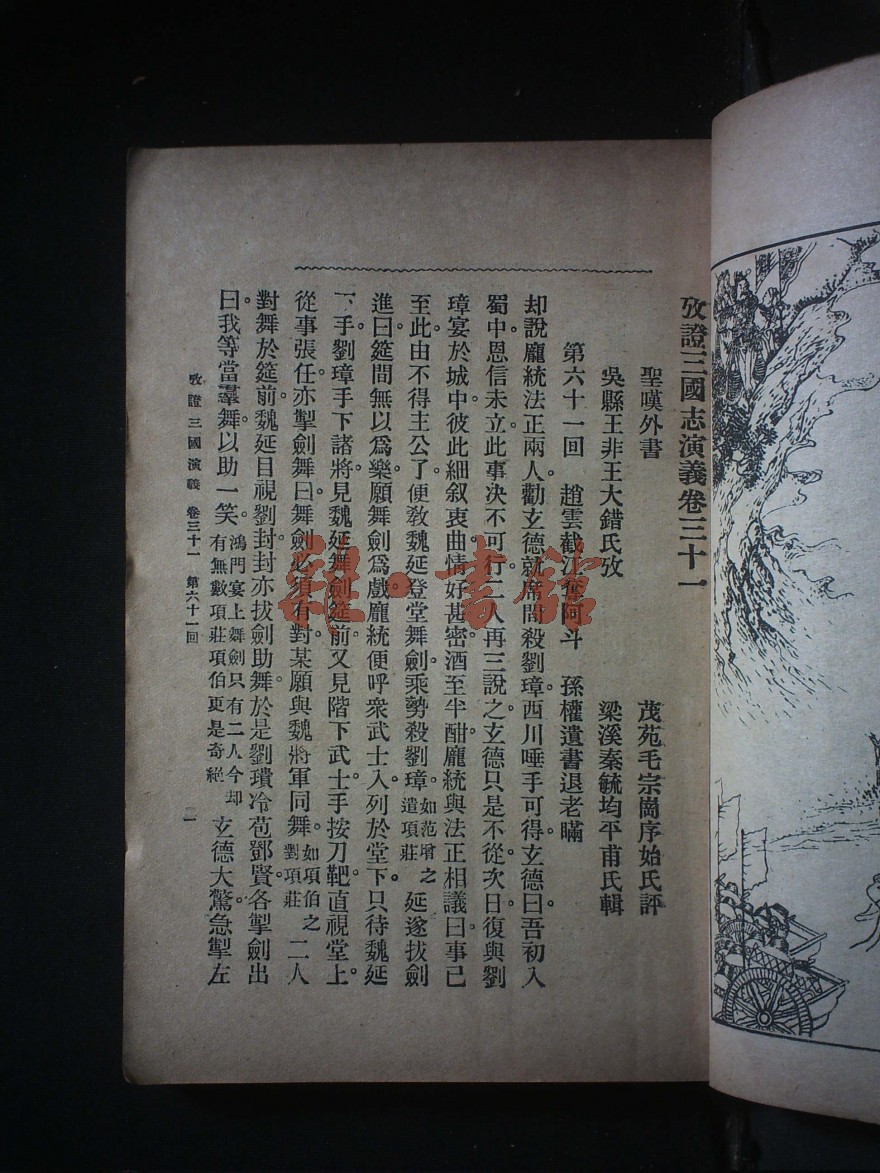 攷證三國志演義卷三十一
聖嘆外書 茂苑毛宗崗序始氏評
吳縣王非王大錯氏攷 梁溪秦毓均平甫氏輯
第六十一回 趙雲截江奪阿斗 孫權遺書退老瞞
却說龐統法正兩人勸玄德就席間殺劉璋西川唾手可得玄德曰吾初入
蜀中恩信未立此事決不可行二人再三說之玄德只是不從次日復與劉
璋宴於城中彼此細叙衷曲情好甚密酒至半酣龐統與法正相議曰事已
至此由不得主公了便敎魏延登堂舞劍乘勢殺劉璋。如范增之遣項莊 延遂拔劍
進曰筵間無以爲樂願舞劍爲戲龐統便呼衆武士入列於堂下只待魏延
下手劉璋手下諸將見魏延舞劍筵前又見階下武士手按刀靶直視堂上。
從事張任亦掣劍舞曰舞劍必須有對某願與魏將軍同舞。如項伯之對項莊 二人
對舞於筵前魏延目視劉封封亦拔劍助舞於是劉璝冷苞鄧賢各掣劍出
曰我等當羣舞以助一笑。鴻門宴上舞劍只有二人今却有無數項莊項伯更是奇絕 玄德大驚急掣左
攷證三國演義 卷三十一 第六十一回 一
雜·書館